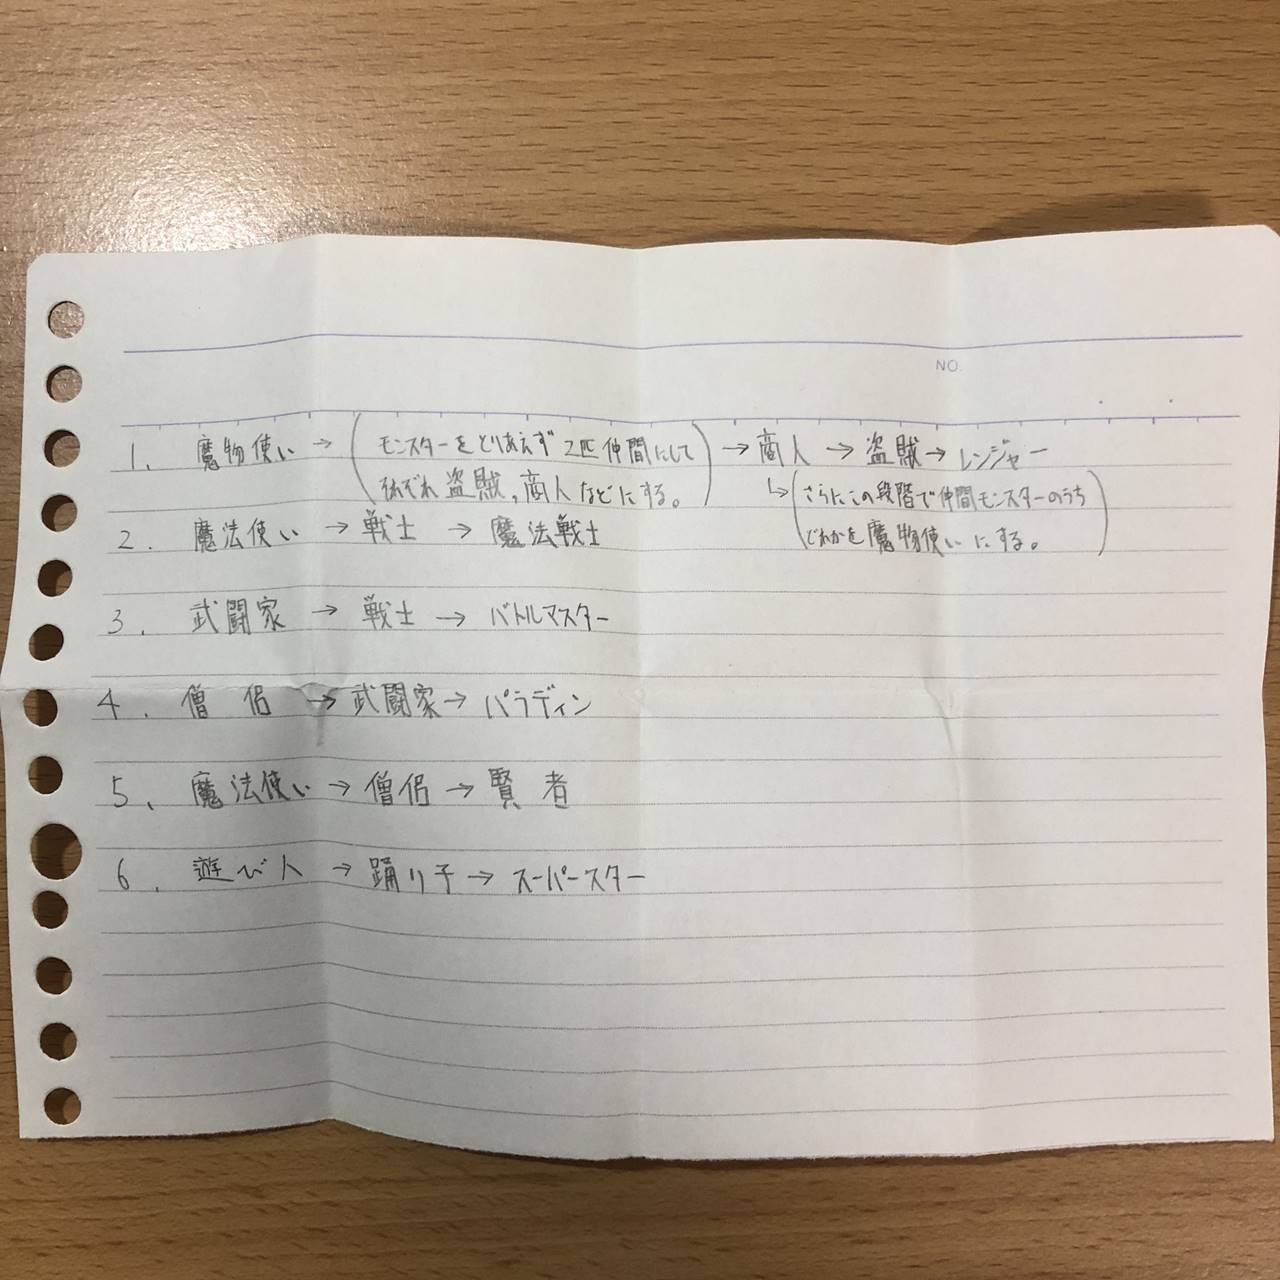 NO.
1. 魔物使い → (モンスターをとりあえず2匹仲間にして → 商人 → 盗賊 → レンジャー
それぞれ盗賊,商人などにする。) ↳ (さらにこの段階で仲間モンスターのうち
2. 魔法使い → 戦士 → 魔法戦士 どれかを魔物使いにする。)
3. 武闘家 → 戦士 → バトルマスター
4. 僧侶 → 武闘家 → パラディン
5. 魔法使い → 僧侶 → 賢者
6. 遊び人 → 踊り子 → スーパースター